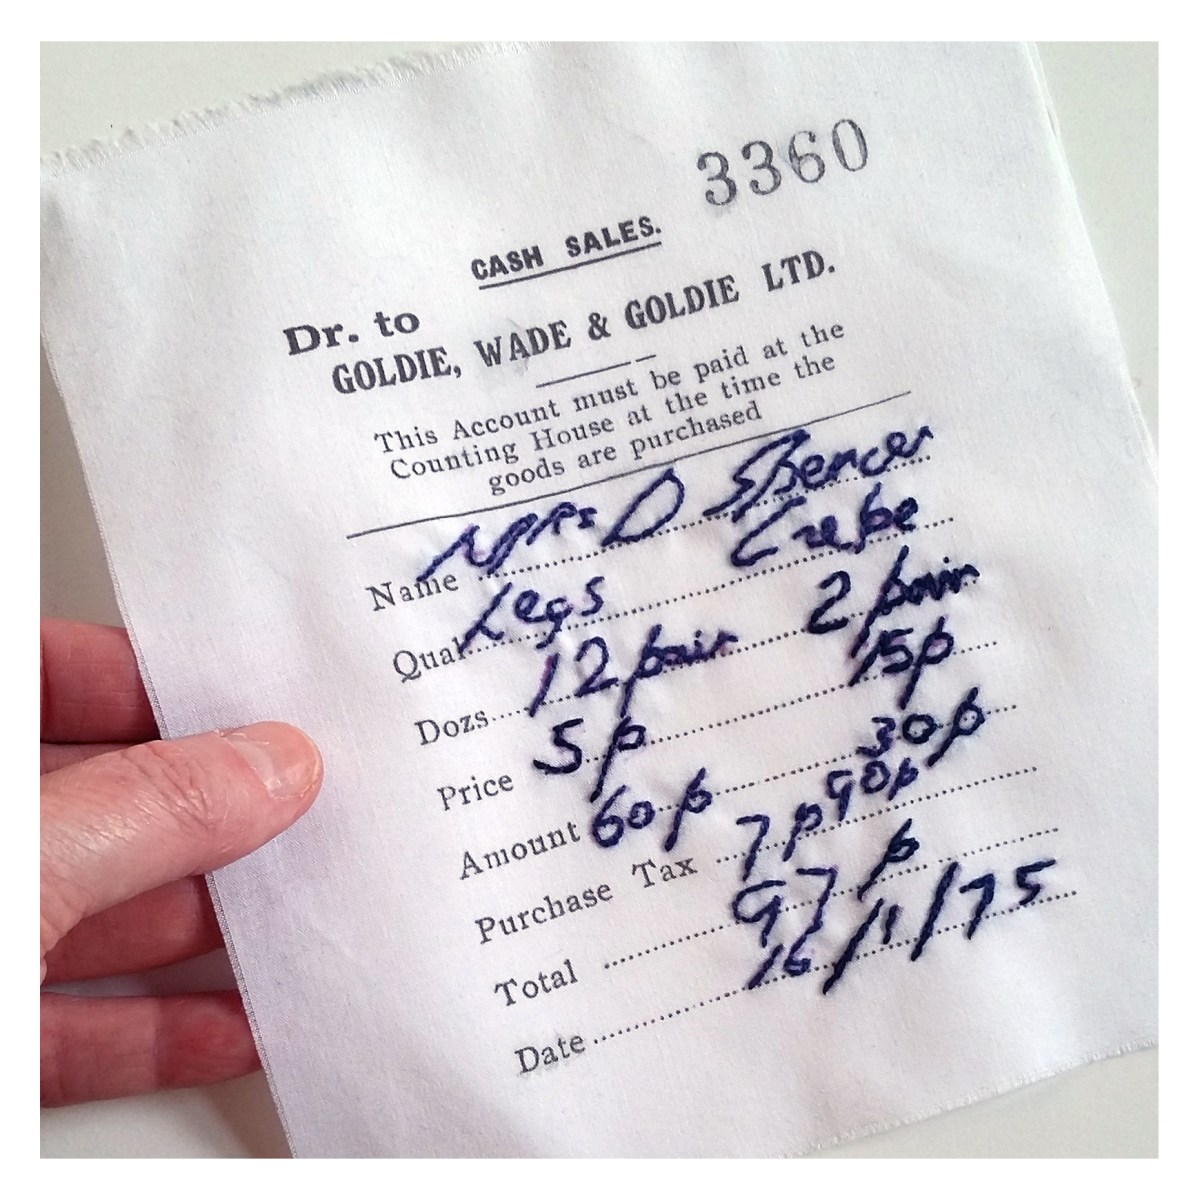 3360
CASH SALES.
Dr. to
GOLDIE, WADE & GOLDIE LTD.
This Account must be paid at the
Counting House at the time the
goods are purchased
Name Mrs D Spencer
Qual. Legs Crepe
Dozs. 12 pair 2 pair
Price 5p 15p
Amount 60p 30p
Purchase Tax 7p 90p
Total 97p
Date 16/1/75